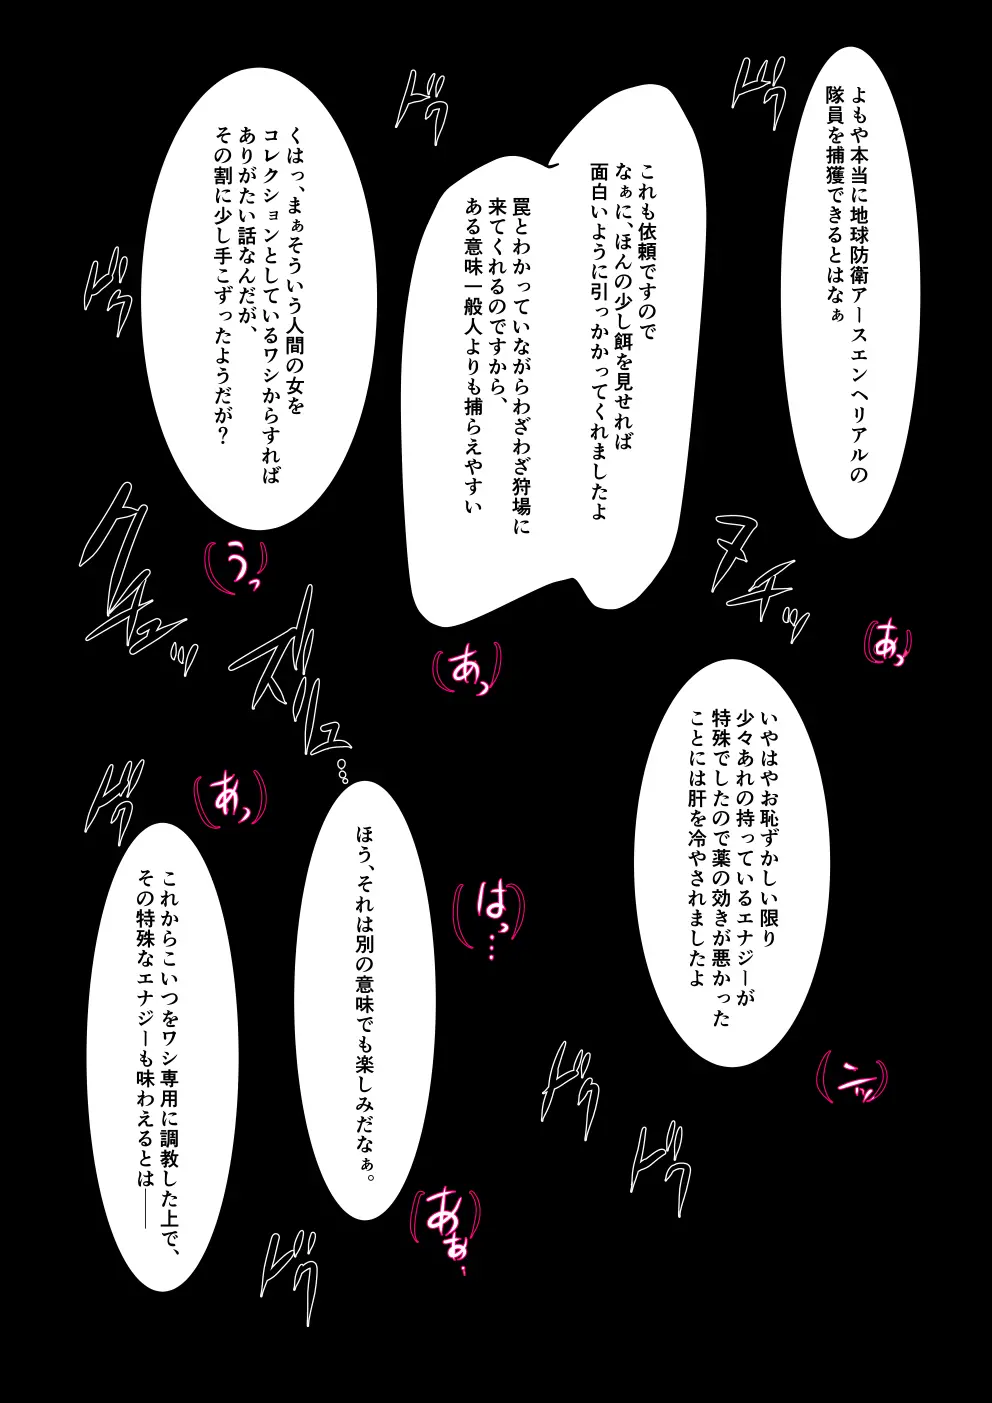 よもや本当に地球防衛アースエンヘリアルの
隊員を捕獲できるとはなぁ
ドゥ
これも依頼ですので
なぁに、ほんの少し餌を見せれば
面白いように引っかかってくれましたよ
罠とわかっていながらわざわざ狩場に
来てくれるのですから、
ある意味一般人よりも捕らえやすい
ドゥ
くはっ、まぁそういう人間の女を
コレクションとしているワシからすれば
ありがたい話なんだが、
その割に少し手こずったようだが?
ドゥ
ヌチッ
あっ
あっ
うっ
グチュッ
ズリュ…
いやはやお恥ずかしい限り
少々あれの持っているエナジーが
特殊でしたので薬の効きが悪かった
ことには肝を冷やされましたよ
ドゥ
ドゥ
はっ…
ほう、それは別の意味でも楽しみだなぁ。
あっ
ドゥ
あぁ…
これからこいつをワシ専用に調教した上で、
その特殊なエナジーも味わえるとは――
ドゥ